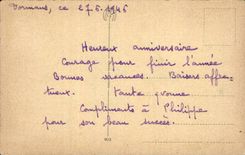 Dormans, ce 27.6.1946
Heureux anniversaire
Courage pour finir l'année
Bonnes vacances. Baisers affec-
tueux. Tante Yvonne
Compliments à Philippe
pour son beau succès.